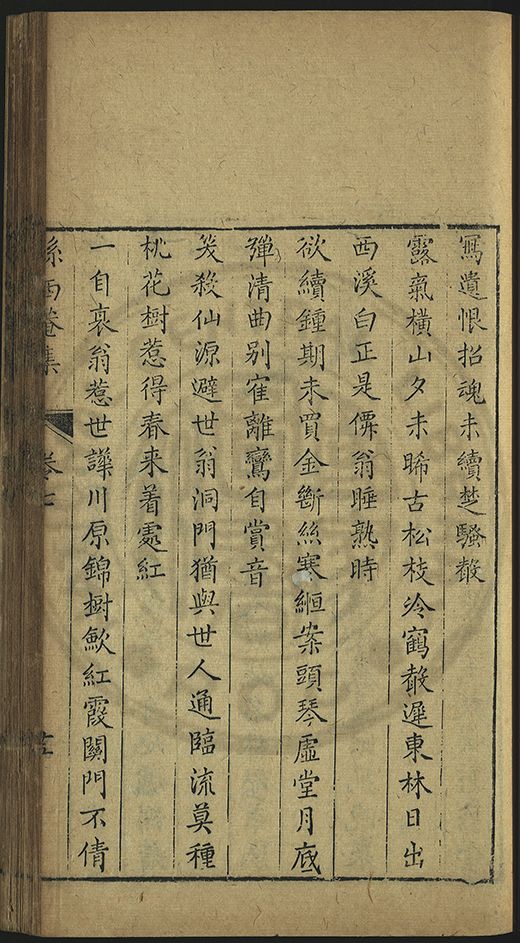 寫遺恨招魂未續楚騷散
露氣橫山夕未晞古松枝冷鶴散遲東林日出
西溪白正是僊翁睡熟時
欲續鍾期未買金斷絲寒絙案頭琴虛堂月底
彈清曲別寉離鸞自賞音
笑殺仙源避世翁洞門猶與世人通臨流莫種
桃花樹惹得春来着處紅
一自衰翁惹世譁川原錦樹歕紅霞關門不倩
孫西菴集 卷七